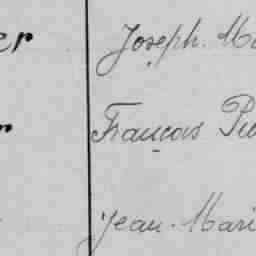 er Joseph. Ma
r François Pie
Jean-Mari